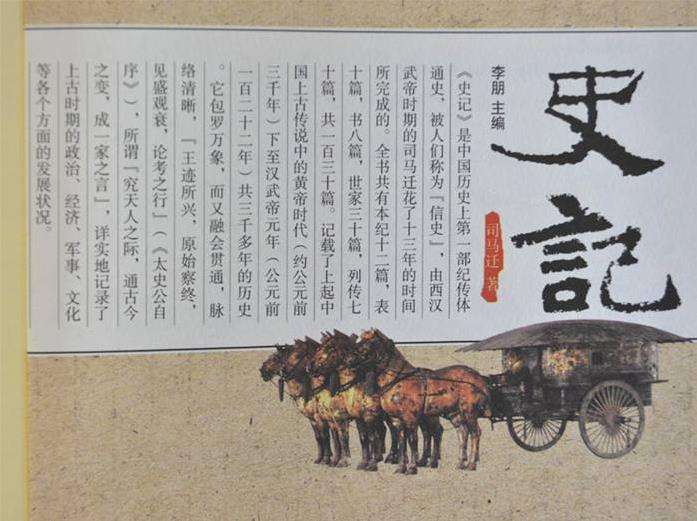 史記
李朋 主编
司马迁 著
《史记》是中国历史上第一部纪传体
通史，被人们称为『信史』，由西汉
武帝时期的司马迁花了十三年的时间
所完成的。全书共有本纪十二篇，表
十篇，书八篇，世家三十篇，列传七
十篇，共一百三十篇。记载了上起中
国上古传说中的黄帝时代（约公元前
三千年）下至汉武帝元年（公元前
一百二十二年）共三千多年的历史
。它包罗万象，而又融会贯通，脉
络清晰，『王迹所兴，原始察终，
见盛观衰，论考之行』（《太史公自
序》），所谓『究天人之际，通古今
之变，成一家之言』，详实地记录了
上古时期的政治、经济、军事、文化
等各个方面的发展状况。